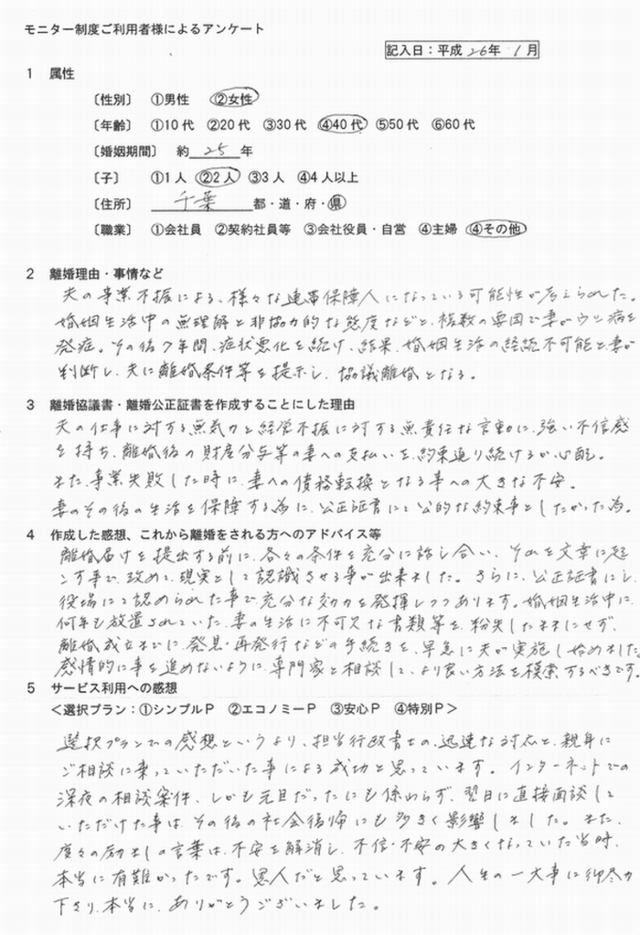 モニター制度ご利用者様によるアンケート
記入日：平成 26年 1月
1 属性
〔性別〕 ①男性 ②女性
〔年齢〕 ①10代 ②20代 ③30代 ④40代 ⑤50代 ⑥60代
〔婚姻期間〕 約 25 年
〔子〕 ①1人 ②2人 ③3人 ④4人以上
〔住所〕 千葉 都・道・府・県
〔職業〕 ①会社員 ②契約社員等 ③会社役員・自営 ④主婦 ④その他
2 離婚理由・事情など
夫の事業不振による、様々な連帯保障人になっている可能性が考えられた。
婚姻生活中の無理解と非協力的な態度などと、複数の要因で妻がウツ病を
発症。その後7年間、症状悪化を続け、結果、婚姻生活の継続不可能と妻が
判断し、夫に離婚条件等を提示し、協議離婚となる。
3 離婚協議書・離婚公正証書を作成することにした理由
夫の仕事に対する無気力と経営不振に対する無責任な言動に、強い不信感
を持ち、離婚後の財産分与等の妻への支払いを、約束通り続けるか心配。
また、事業失敗した時に、妻への債務転換となる事への大きな不安。
妻のその後の生活を保障する為に、公正証書にて公的な約束事としたかった為。
4 作成した感想、これから離婚をされる方へのアドバイス等
離婚届けを提出する前に、各々の条件を充分に話し合い、それを文章に起
こす事で、改めて、現実として認識させる事が出来ました。さらに、公正証書にし、
役場にて認められた事で、充分な効力を発揮しつつあります。婚姻生活中に、
何年も放置されていた、妻の生活に不可欠な書類等を、紛失したままにせず、
離婚成立までに、発見・再発行などの手続きを、早急に夫が実施し始めました。
感情的に事を進めないように、専門家と相談して、より良い方法を模索するべきです。
5 サービス利用への感想
＜選択プラン：①シンプルP ②エコノミーP ③安心P ④特別P＞
選択プランでの感想というより、担当行政書士の、迅速な対応と、親身に
ご相談に乗っていただいた事による成功と思っています。インターネットでの
深夜の相談案件、しかも元旦だったにも係わらず、翌日に直接面談して
いただけた事は、その後の社会復帰にも多く影響しました。また、
度々の励ましの言葉は、不安を解消し、不信・不安の大きくなっていた当時、
本当に有難かったです。恩人だと思っています。人生の一大事に御尽力
下さり、本当に、ありがとうございました。